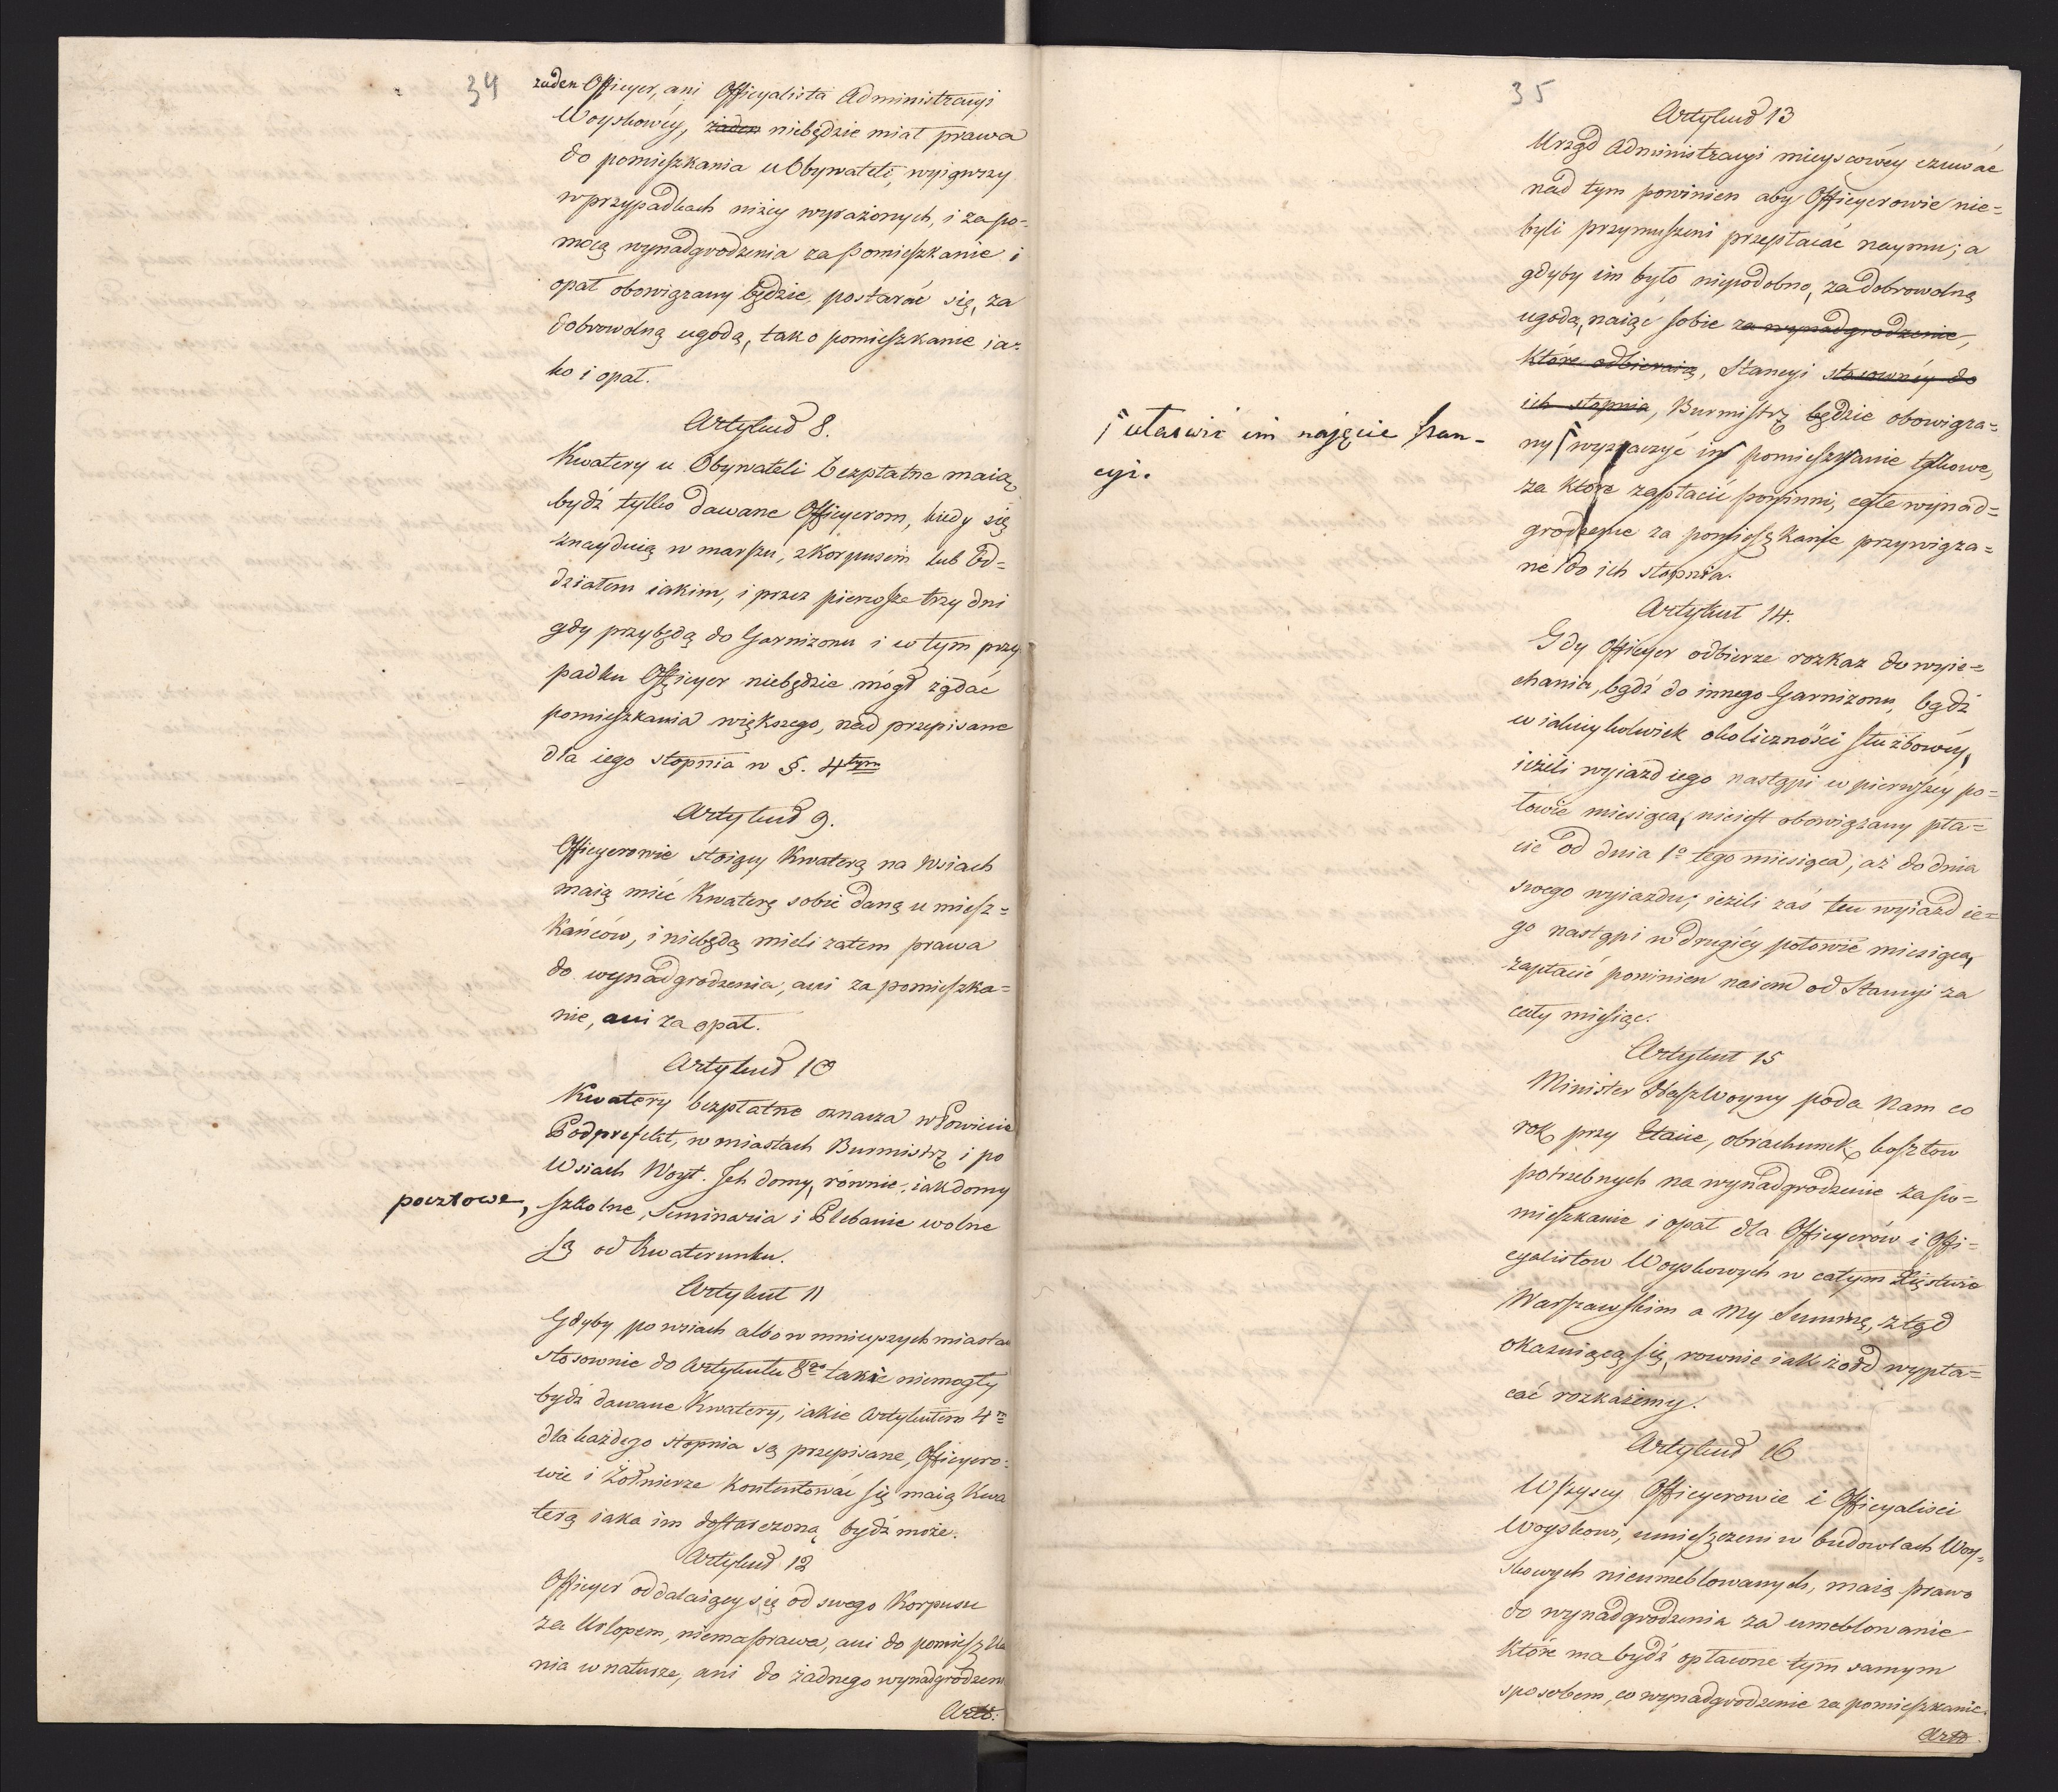 34
żaden Officyer, ani Officyalista Administracyi
Woyskowéy, żaden niebędzie miał prawa
do pomieſzkania u Obywateli, wyiąwszy
w przypadkach niżey wyrażonych, i za po-
mocą wynadgrodzenia za pomieſzkanie i
opał obowiązany będzie, postarać się, za
dobrowolną ugodą, tak o pomieſzkanie ia-
ko i opał.
Artykuł 8.
Kwatery u Obywateli bezpłatne maią
bydź tylko dawane Officyerom, kiedy się
znayduią w marſzu, z Korpusem lub Od=
działem iakim, i przez pierwſze trzy dni
gdy przybędą do Garnizonu i w tym przy
padku Officyer niebędzie mógł żądać
pomieſzkania większego, nad przepisane
dla iego stopnia w §. 4tym
Artykuł 9.
Officyerowie stoiący Kwaterą na Wsiach
maią mieć Kwaterę sobie daną u mieſz=
kańców, i niebędą mieli zatem prawa
do wynadgrodzenia, ani za pomieſzka=
nie, ani za opał.
Artykuł 10
Kwatery bezpłatne oznacza w Powiecie
Podprefekt, w miastach Burmistrz i po
Wsiach Woyt. Ich domy, równie, iak domy
pocztowe, ſzkolne, Seminaria i Plebanie wolne
ſą od Kwaterunku.
Artykuł 11
Gdyby po wsiach albo w mnieyszych miastac
stosownie do Artykułu 8go takie niemogły
bydź dawane Kwatery, iakie Artykułem 4m
dla każdego stopnia są przepisane, Officyero=
wie i Żołnierze kontentować ſię maią Kwa
terą iaka im doſtarczoną bydź może.
Artykuł 12
Officyer oddalaiący się od swego Korpusu
za Urlopem, niema prawa, ani do pomieſzka
nia w naturze, ani do żadnego wynadgrodzeni
Artt:
35
Artykuł 13
Urząd Administracyi mieyscowéy czuwać
nad tym powinien aby Officyerowie nie=
byli przymuſzeni przepłacać naymu; a
gdyby im było niepodobno, za dobrowolną
ugodą, naiąć ſobie za wynadgrodzenie,
które odbieraią, Stancyi stosownéy do
ich stopnia, Burmiſtrz będzie obowiąza=
ny wyznaczyć im pomieſzkanie takowe,
za które zapłacić powinni, całe wynad=
grodzenie za pomieſzkanie przywiąza=
ne do ich stopnia.
ułatwić im najęcie ſtan-
cyi.
Artykuł 14.
Gdy Officyer odbierze rozkaz do wyie=
chania, bądź do innego Garnizonu, bądź
w iakieykolwiek okoliczności ſłużbowéy,
ieżeli wyiazd iego nastąpi w pierwſzéy po=
łowie miesiąca, nieieſt obowiązany pła=
cić od dnia 1o tego miesiąca, aż do dnia
swego wyiazdu; ieżeli zaś ten wyiazd ie=
go nastąpi w drugiéy połowie miesiąca,
zapłacić powinien naiem od Stancyi za
cały mieſiąc.
Artykuł 15
Minister Naſz Woyny poda Nam co
rok, przy Etacie, obrachunek koſztow
potrzebnych na wynadgrodzenie za po=
mieſzkanie i opał dla Officyerów i Offi=
cyalistow Woyskowych w całym Xięstwie
Warſzawſkim a My Summę, ztąd
okazuiącą ſię, rownie iak żołd wypła=
cać rozkażemy.
Artykuł 16
Wſzyscy Officyerowie i Officyalisci
Woyskowi, umieſzczeni w budowlach Woy=
skowych nieumeblowanych, maią prawo
do wynadgrodzenia za umeblowanie
które ma bydź opłacone tym samym
sposobem, co wynadgrodzenie za pomieſzkanie.
Artt.